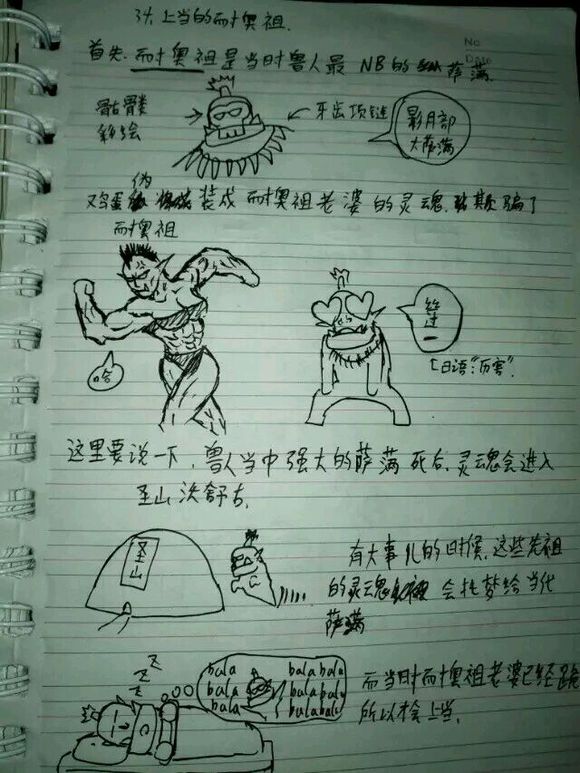 31. 上当的耐奥祖.
No
Date
首先.耐奥祖是当时兽人最NB的萨满.
骷髅
彩绘
牙齿项链
影月部
大萨满
鸡蛋伪装成耐奥祖老婆的灵魂.欺骗了
耐奥祖
哈
日语"厉害".
这里要说一下,兽人当中强大的萨满死后.灵魂会进入
圣山沃舒古.
圣山
有大事儿的时候.这些先祖
的灵魂会托梦给当代
萨满
z z z
bala balabala
bala balabala
bala balabala
而当时耐奥祖老婆已经
所以才会上当.